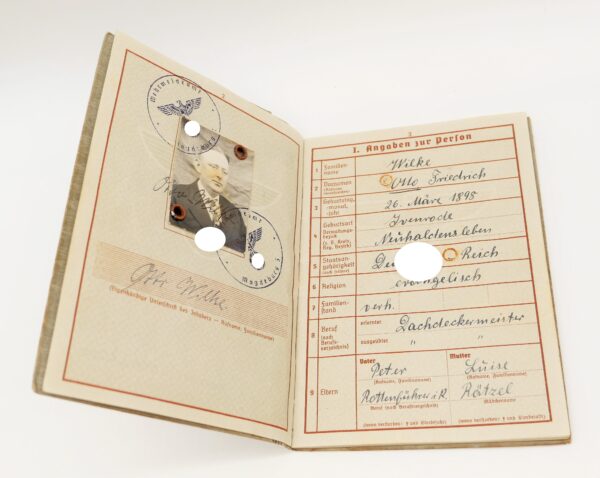 2
Wehrmeldeamt
Otto Wilke
Magdeburg 2
Otto Wilke
(Eigenhändige Unterschrift des Inhabers — Rufname, Familienname)
3
I. Angaben zur Person
1 Familien-name Wilke
2 Vornamen (Rufname unterstreichen) Otto Friedrich
3 Geburtstag, -monat, -jahr 26. März 1895
4 Geburtsort Ivenrode
Verwaltungsbezirk (z. B. Kreis, Reg.-bezirk) Neuhaldensleben
5 Staatsangehörigkeit (auch frühere) Reich
6 Religion evangelisch
7 Familienstand verh.
8 Beruf (nach Berufsverzeichnis) erlernter Dachdeckermeister
ausgeübter " "
9 Eltern
Vater Mutter
Peter Luise
(Rufname, Familienname) (Rufname, Familienname)
Rottenführer i.R. Rätzel
Beruf (nach Berufsverzeichnis) Mädchenname
(wenn verstorben: † und Sterbejahr) (wenn verstorben: † und Sterbejahr)